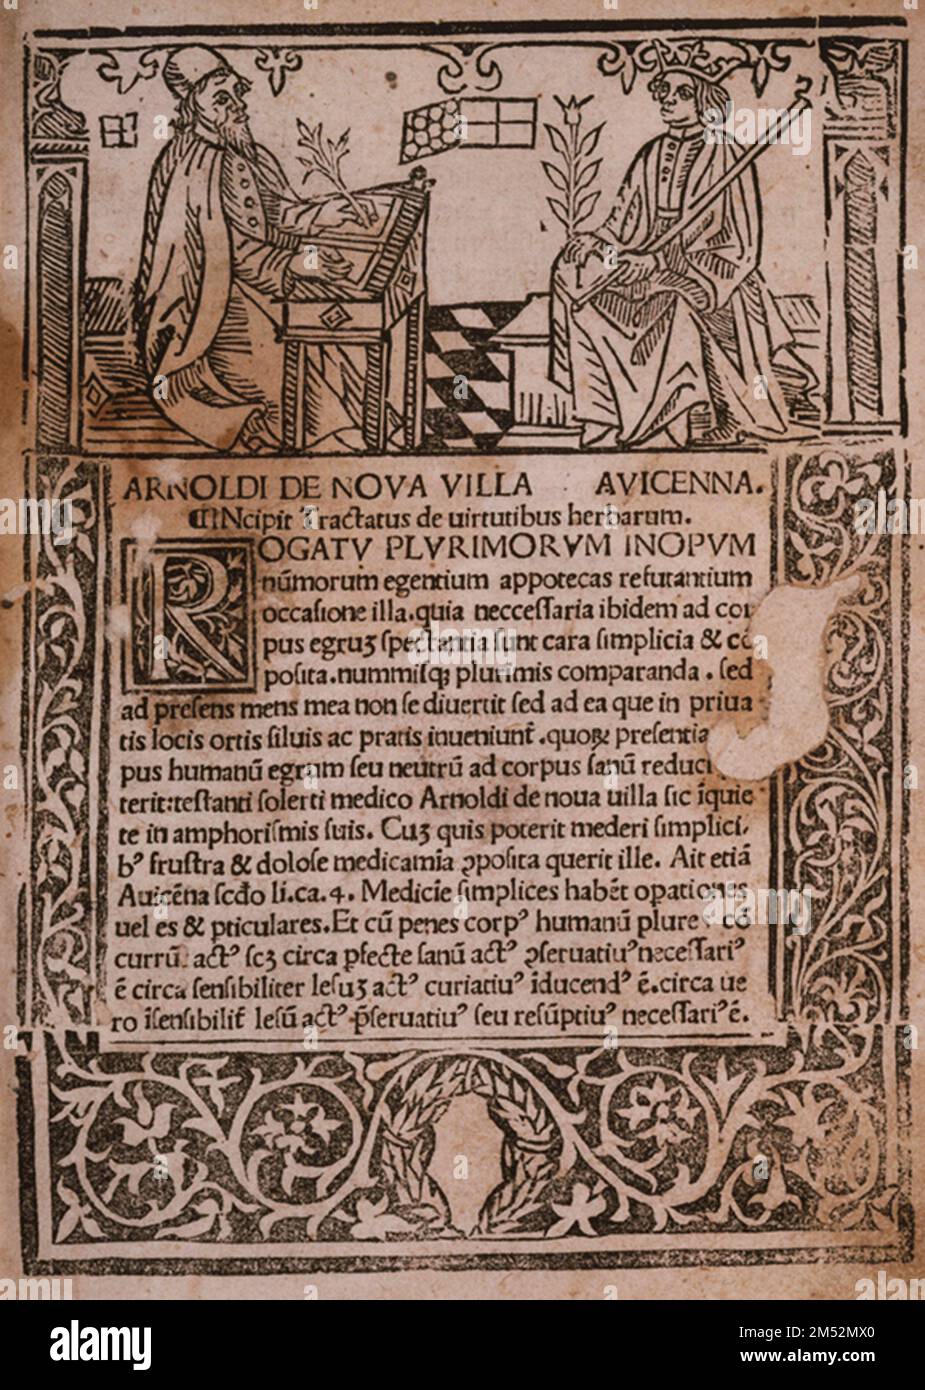 ARNOLDI DE NOVA VILLA AVICENNA.
INcipit Tractatus de uirtutibus herbarum.
ROGATV PLVRIMORVM INOPVM
nūmorum egentium appotecas refutantium
occasione illa.quia neccessaria ibidem ad cor
pus egruʒ spectantia sunt cara simplicia & cō
posita.nummisqꝫ plurimis comparanda . sed
ad presens mens mea non se diuertit sed ad ea que in priua
tis locis ortis siluis ac pratis inueniunt̄ .quoꝝ presentia
pus humanū egrum seu neutrū ad corpus sanū reduci
terit:testanti solerti medico Arnoldi de noua uilla sic īquie
te in amphorismis suis. Cuʒ quis poterit mederi simplici,
bꝰ frustra & dolose medicamīa ꝓposita querit ille. Ait etiā
Auicēna scđo li.ca.4. Medicīe simplices habēt opationes
uel es & pticulares.Et cū penes corpꝰ humanū plure cō
currū. actꝰ scʒ circa pfecte sanū actꝰ ꝯseruatiuꝰ necessariꝰ
ē circa sensibiliter lesuʒ actꝰ curiatiuꝰ īducendꝰ ē.circa ue
ro īsensibilit̄ lesū actꝰ p̄seruatiuꝰ seu resūptiuꝰ necessariꝰ ē.
alamy
Image ID: 2M52MX0
www.alamy.com